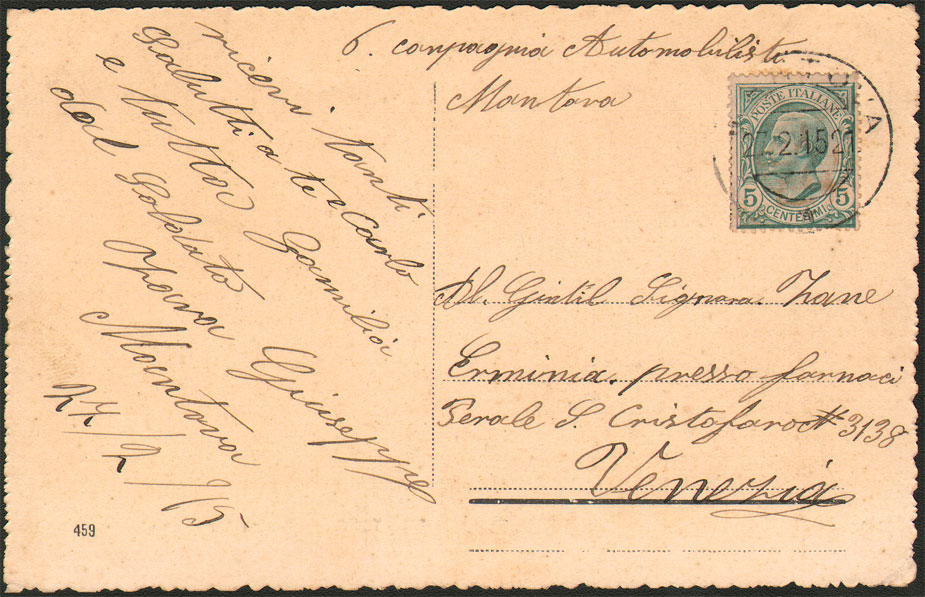 6. compagnia Automobilisti
Mantova
ricevi tanti
saluti a te e Carlo
e tutta famiilia
dal Soldato
Giuseppe
Mantova
27/2/15
POSTE ITALIANE
5 CENTESIMI 5
27.2.15 21
Al. Gintil Signora. Zane
Erminia. presso farnaci
S. Cristofaro N 3138
Venezia
459